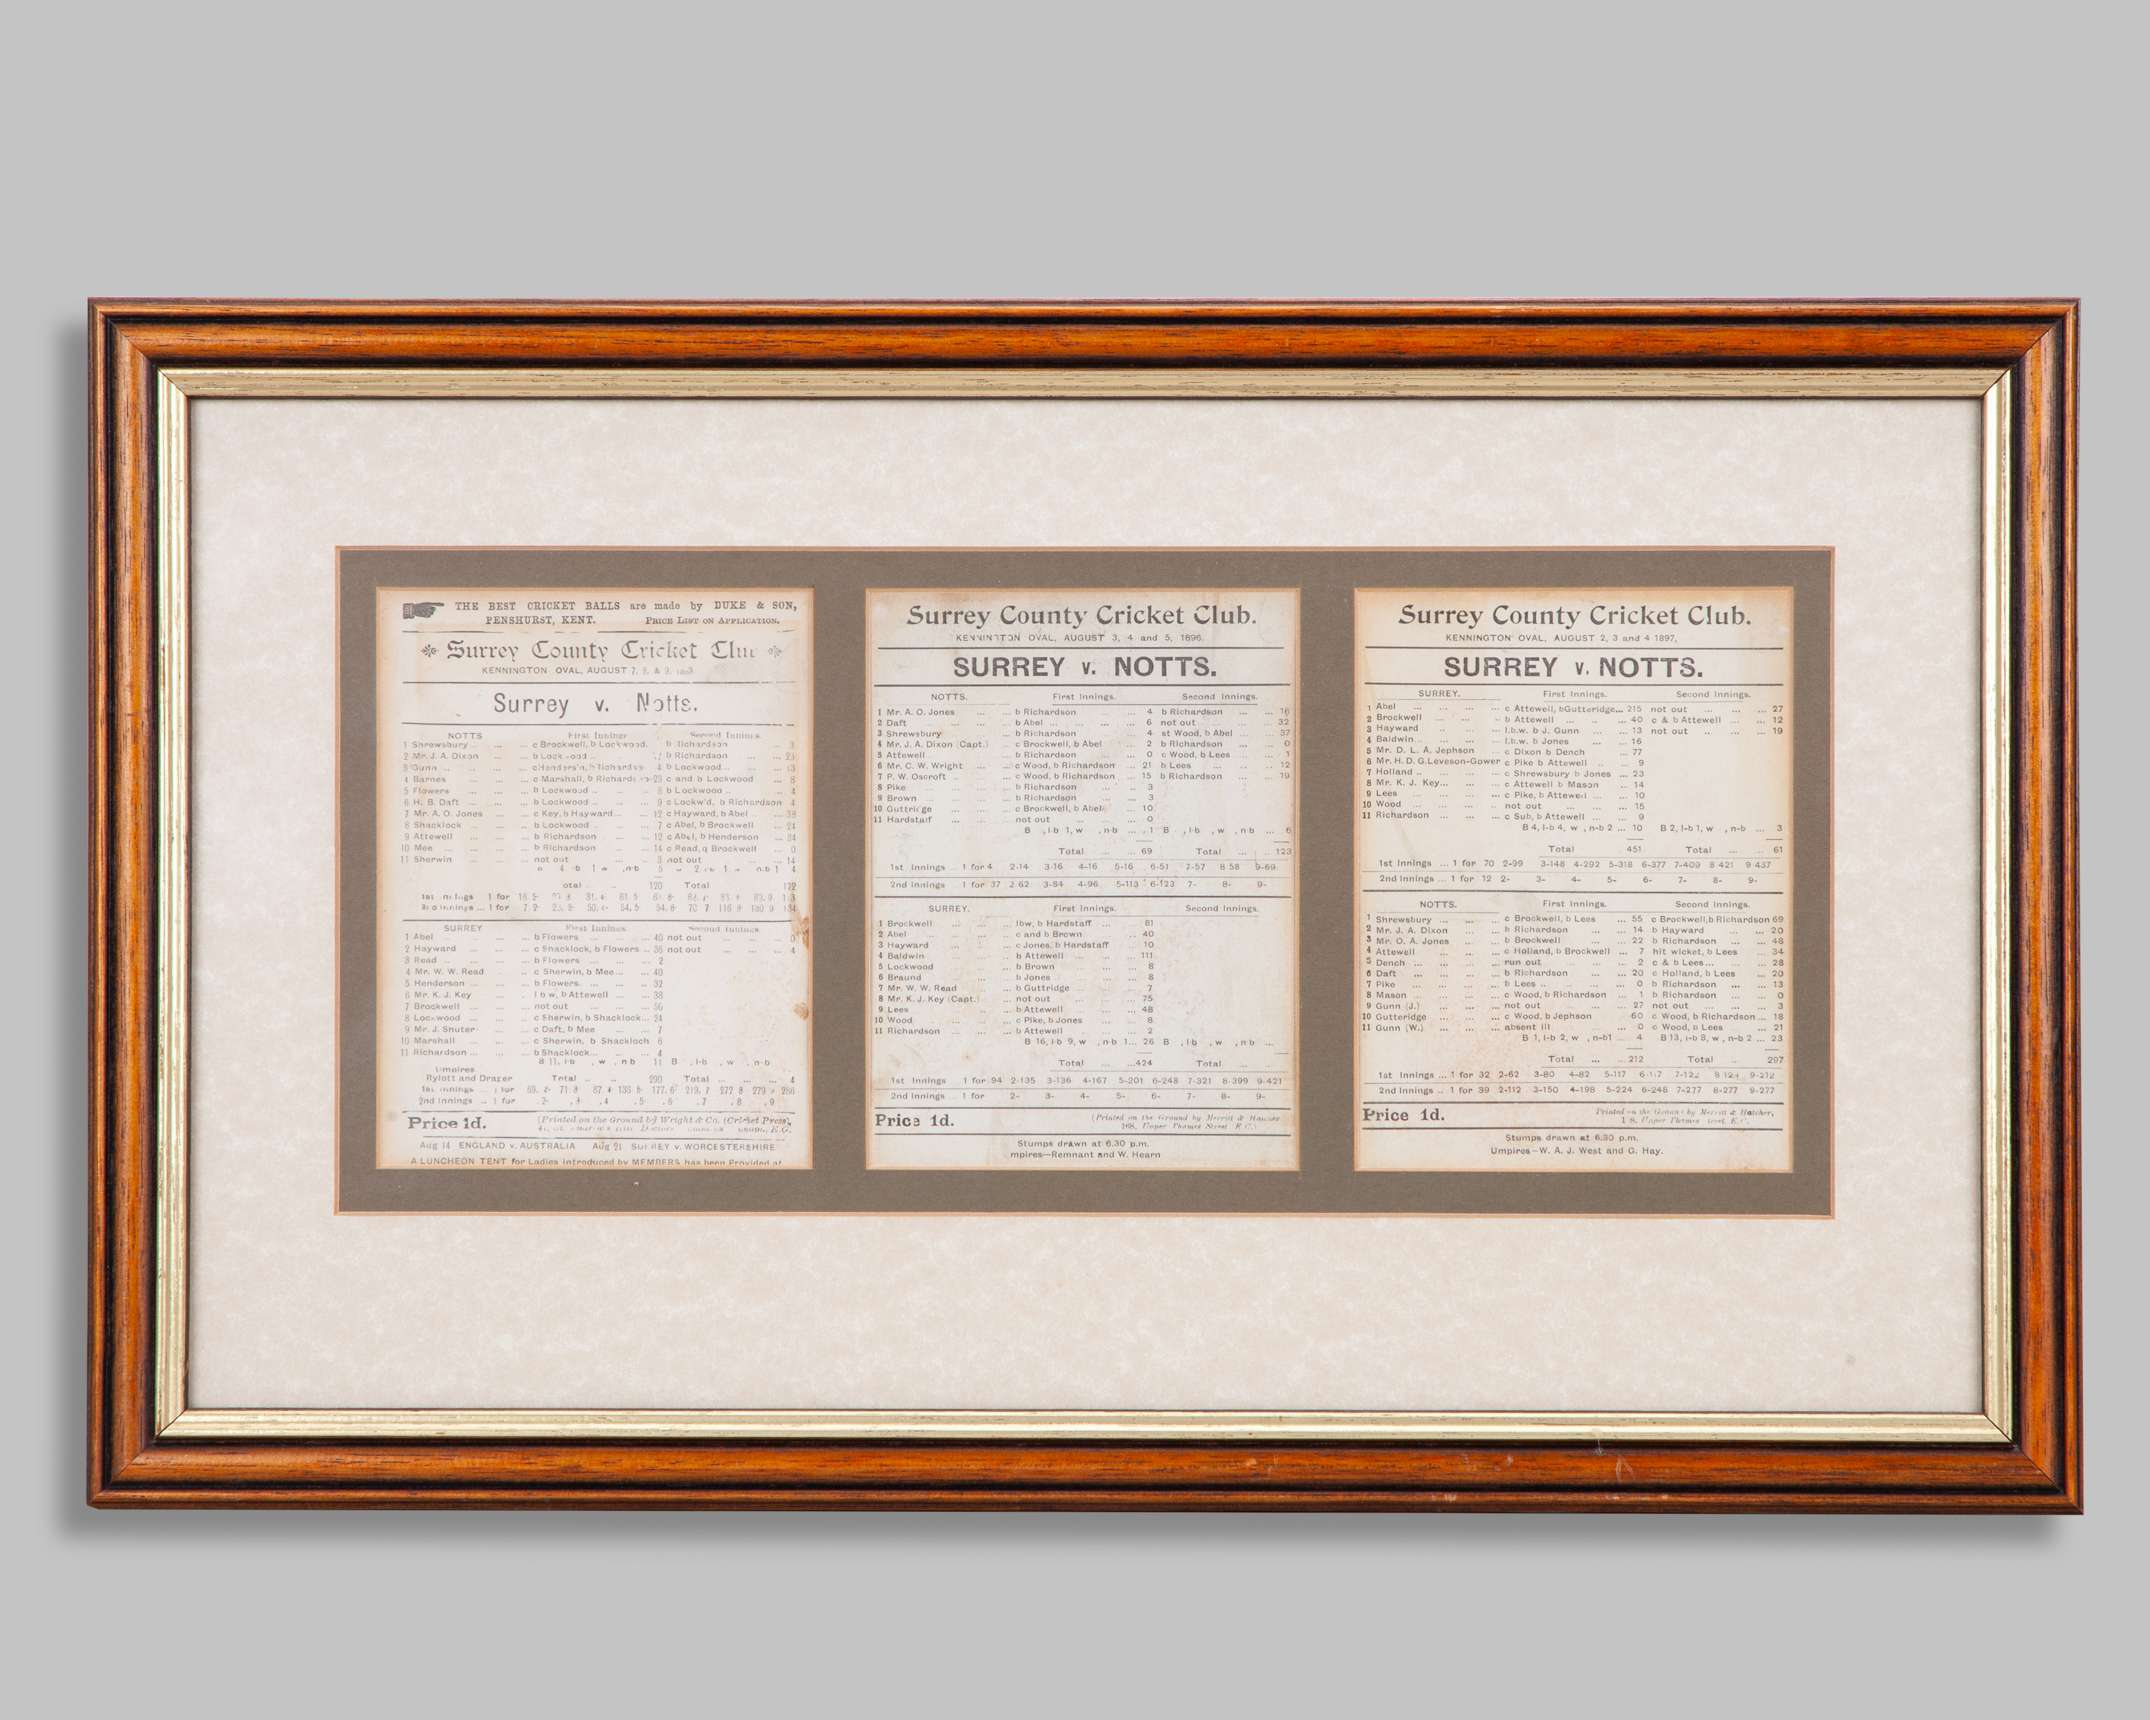 THE BEST CRICKET BALLS are made by DUKE & SON,
PENSHURST, KENT. PRICE LIST ON APPLICATION.
Surrey County Cricket
KENNINGTON OVAL, AUGUST 7,
Surrey v. Notts.
NOTTS First Innings Second Innings
1 Shrewsbury ... c Brockwell, b Lockwood. b Richardson ... 3
2 Mr. J. A. Dixon ... b Lockwood b Richardson ... 23
3 Gunn b Richardson 4 b Lockwood ... 13
4 Barnes ... c Marshall, b 23 c and b Lockwood ... 8
5 Flowers ... b Lockwood 8 b Lockwood ... 4
6 H. B. Daft ... b Lockwood ... 9 c Lockw'd, b Richardson 4
7 Mr. A. O. Jones ... c Key, b Hayward ... 12 c Hayward, b Abel ... 38
8 Shacklock ... b Lockwood ... 7 c Abel, b Brockwell ... 24
9 Attewell ... b Richardson ... 12 c Abel, b Henderson ... 34
10 Mee ... b Richardson ... 14 c Read, b Brockwell ... 0
11 Sherwin ... not out ... 3 not out ... 14
Total 120 Total 172
SURREY First Innings Second Innings
1 Abel ... b Flowers ... 40 not out ... 0
2 Hayward ... c Shacklock, b Flowers ... 36 not out ... 4
3 Read ... b Flowers ... 2
4 Mr. W. W. Read ... c Sherwin, b Mee ... 40
5 Henderson ... b Flowers ... 32
6 Mr. K. J. Key ... l b w, b Attewell ... 38
7 Brockwell ... not out
8 Lockwood ... c Sherwin, b Shacklock... 24
9 Mr. J. Shuter ... c Daft, b Mee ... 7
10 Marshall ... c Sherwin, b Shacklock 6
11 Richardson ... b Shacklock... 4
B 11, l-b , w , n-b 11 B , l-b , w , n-b
Umpires
Rylott and Draper Total ... 290 Total ... 4
2nd Innings ... 1 for
Price 1d. (Printed on the Ground by Wright & Co. (Cricket Press),
Aug 14 ENGLAND v. AUSTRALIA Aug 21 SURREY v. WORCESTERSHIRE
A LUNCHEON TENT for Ladies introduced by MEMBERS has been Provided at
Surrey County Cricket Club.
KENNINGTON OVAL, AUGUST 3, 4 and 5, 1896.
SURREY v. NOTTS.
NOTTS. First Innings. Second Innings.
1 Mr. A. O. Jones ... b Richardson ... 4 b Richardson ... 16
2 Daft ... b Abel ... 6 not out ... 32
3 Shrewsbury ... b Richardson ... 4 st Wood, b Abel ... 37
4 Mr. J. A. Dixon (Capt.) ... c Brockwell, b Abel ... 2 b Richardson ... 0
5 Attewell ... b Richardson ... 0 c Wood, b Lees ... 1
6 Mr. C. W. Wright ... c Wood, b Richardson ... 21 b Lees ... 12
7 P. W. Oscroft ... c Wood, b Richardson ... 15 b Richardson ... 19
8 Pike ... b Richardson ... 3
9 Brown ... b Richardson ... 3
10 Guttridge ... c Brockwell, b Abel ... 10
11 Hardstaff ... not out ... 0
B , l-b 1, w , n-b ... 1 B , l-b , w , n-b ... 6
Total ... 69 Total ... 123
1st Innings ... 1 for 4 2-14 3-16 4-16 5-16 6-51 7-57 8-58 9-69
2nd Innings 1 for 37 2-62 3-84 4-96 5-113 6-123 7- 8- 9-
SURREY. First Innings. Second Innings.
1 Brockwell ... lbw, b Hardstaff ... 81
2 Abel ... c and b Brown ... 40
3 Hayward ... c Jones, b Hardstaff 10
4 Baldwin ... b Attewell ... 111
5 Lockwood ... b Brown ... 8
6 Braund ... b Jones ... 8
7 Mr. W. W. Read ... b Guttridge ... 7
8 Mr. K. J. Key (Capt.) ... not out ... 75
9 Lees ... b Attewell ... 48
10 Wood ... c Pike, b Jones ... 8
11 Richardson ... b Attewell ... 2
B 16, l-b 9, w , n-b 1... 26 B , l-b , w , n-b ...
Total ...424 Total ...
1st Innings 1 for 94 2-135 3-136 4-167 5-201 6-248 7-321 8-399 9-421
2nd Innings ... 1 for 2- 3- 4- 5- 6- 7- 8- 9-
Price 1d. (Printed on the Ground by Merritt & Hatcher
168, Upper Thames Street E.C.)
Stumps drawn at 6.30 p.m.
mpires—Remnant and W. Hearn
Surrey County Cricket Club.
KENNINGTON OVAL, AUGUST 2, 3 and 4 1897,
SURREY v. NOTTS.
SURREY. First Innings. Second Innings.
1 Abel ... c Attewell, b Gutteridge... 215 not out ... 27
2 Brockwell ... b Attewell ... 40 c & b Attewell ... 12
3 Hayward ... l.b.w. b J. Gunn ... 13 not out ... 19
4 Baldwin... l.b.w. b Jones ... 16
5 Mr. D. L. A. Jephson ... c Dixon b Dench ... 77
6 Mr. H. D. G. Leveson-Gower c Pike b Attewell ... 9
7 Holland ... c Shrewsbury b Jones ... 23
8 Mr. K. J. Key... c Attewell b Mason ... 14
9 Lees ... c Pike, b Attewell ... 10
10 Wood ... not out ... 15
11 Richardson ... c Sub, b Attewell ... 9
B 4, l-b 4, w , n-b 2 ... 10 B 2, l-b 1, w , n-b ... 3
Total 451 Total ... 61
1st Innings ... 1 for 70 2-99 3-148 4-292 5-318 6-377 7-409 8-421 9-437
2nd Innings ... 1 for 12 2- 3- 4- 5- 6- 7- 8- 9-
NOTTS. First Innings. Second Innings.
1 Shrewsbury ... c Brockwell, b Lees ... 55 c Brockwell, b Richardson 69
2 Mr. J. A. Dixon ... b Richardson ... 14 b Hayward ... 20
3 Mr. O. A. Jones ... b Brockwell ... 22 b Richardson ... 48
4 Attewell ... c Holland, b Brockwell ... 7 hit wicket, b Lees ... 34
5 Dench ... run out ... 2 c & b Lees... 28
6 Daft ... b Richardson ... 20 c Holland, b Lees ... 20
7 Pike ... b Lees ... 0 b Richardson ... 13
8 Mason ... c Wood, b Richardson ... 1 b Richardson ... 0
9 Gunn (J.) ... not out ... 27 not out ... 3
10 Gutteridge ... c Wood, b Jephson 60 c Wood, b Richardson ... 18
11 Gunn (W.) ... absent ill ... 0 c Wood, b Lees ... 21
B 1, l-b 2, w , n-b1 ... 4 B 13, l-b 8, w , n-b 2 ... 23
Total ... 212 Total ... 297
1st Innings ... 1 for 32 2-62 3-80 4-82 5-117 6-117 7-122 8-124 9-212
2nd Innings ... 1 for 39 2-112 3-150 4-198 5-224 6-246 7-277 8-277 9-277
Price 1d. Printed on the Ground by Merritt & Hatcher,
Upper Thames Street E.C.
Stumps drawn at 6.30 p.m.
Umpires—W. A. J. West and G. Hay.